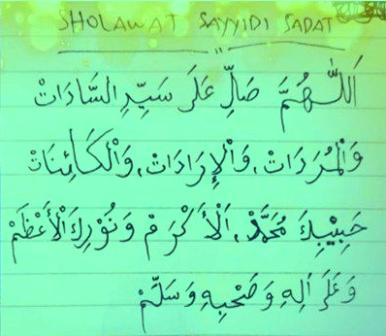 SHOLAWAT SAYYIDI SADAT
اَللّٰهُمَّ صَلِّ عَلَى سَيِّدِ السَّادَاتْ
وَالْمُرَدَاتْ، وَالْإِرَادَاتْ، وَالْكَائِنَاتْ
حَبِيْبِكَ مُحَمَّدْ، اَلْأَكْرَمْ وَنُوْرِكَ الْأَعْظَمْ
وَعَلَى اٰلِهِ وَصَحْبِهِ وَسَلِّمْ